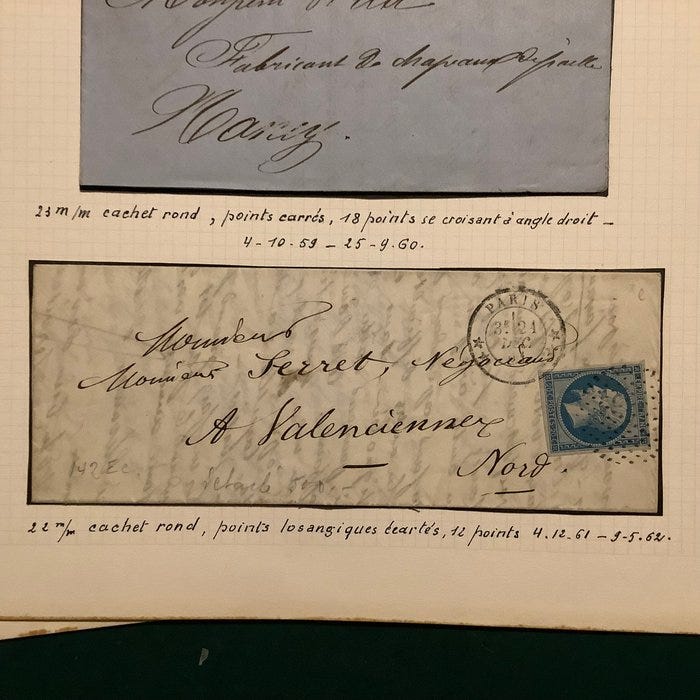 Fabricant de chapeaux de paille
Nancy.
23 m/m cachet rond, points carrés, 18 points se croisant à angle droit —
4-10-59 — 25-9.60.
PARIS
3E 21
DEC
Monsieur
Monsieur Serret, Negociant
A Valenciennes
Nord.
142 Ec.
22 m/m cachet rond, points losangiques écartés, 12 points 4.12.61 — 9-5.62.